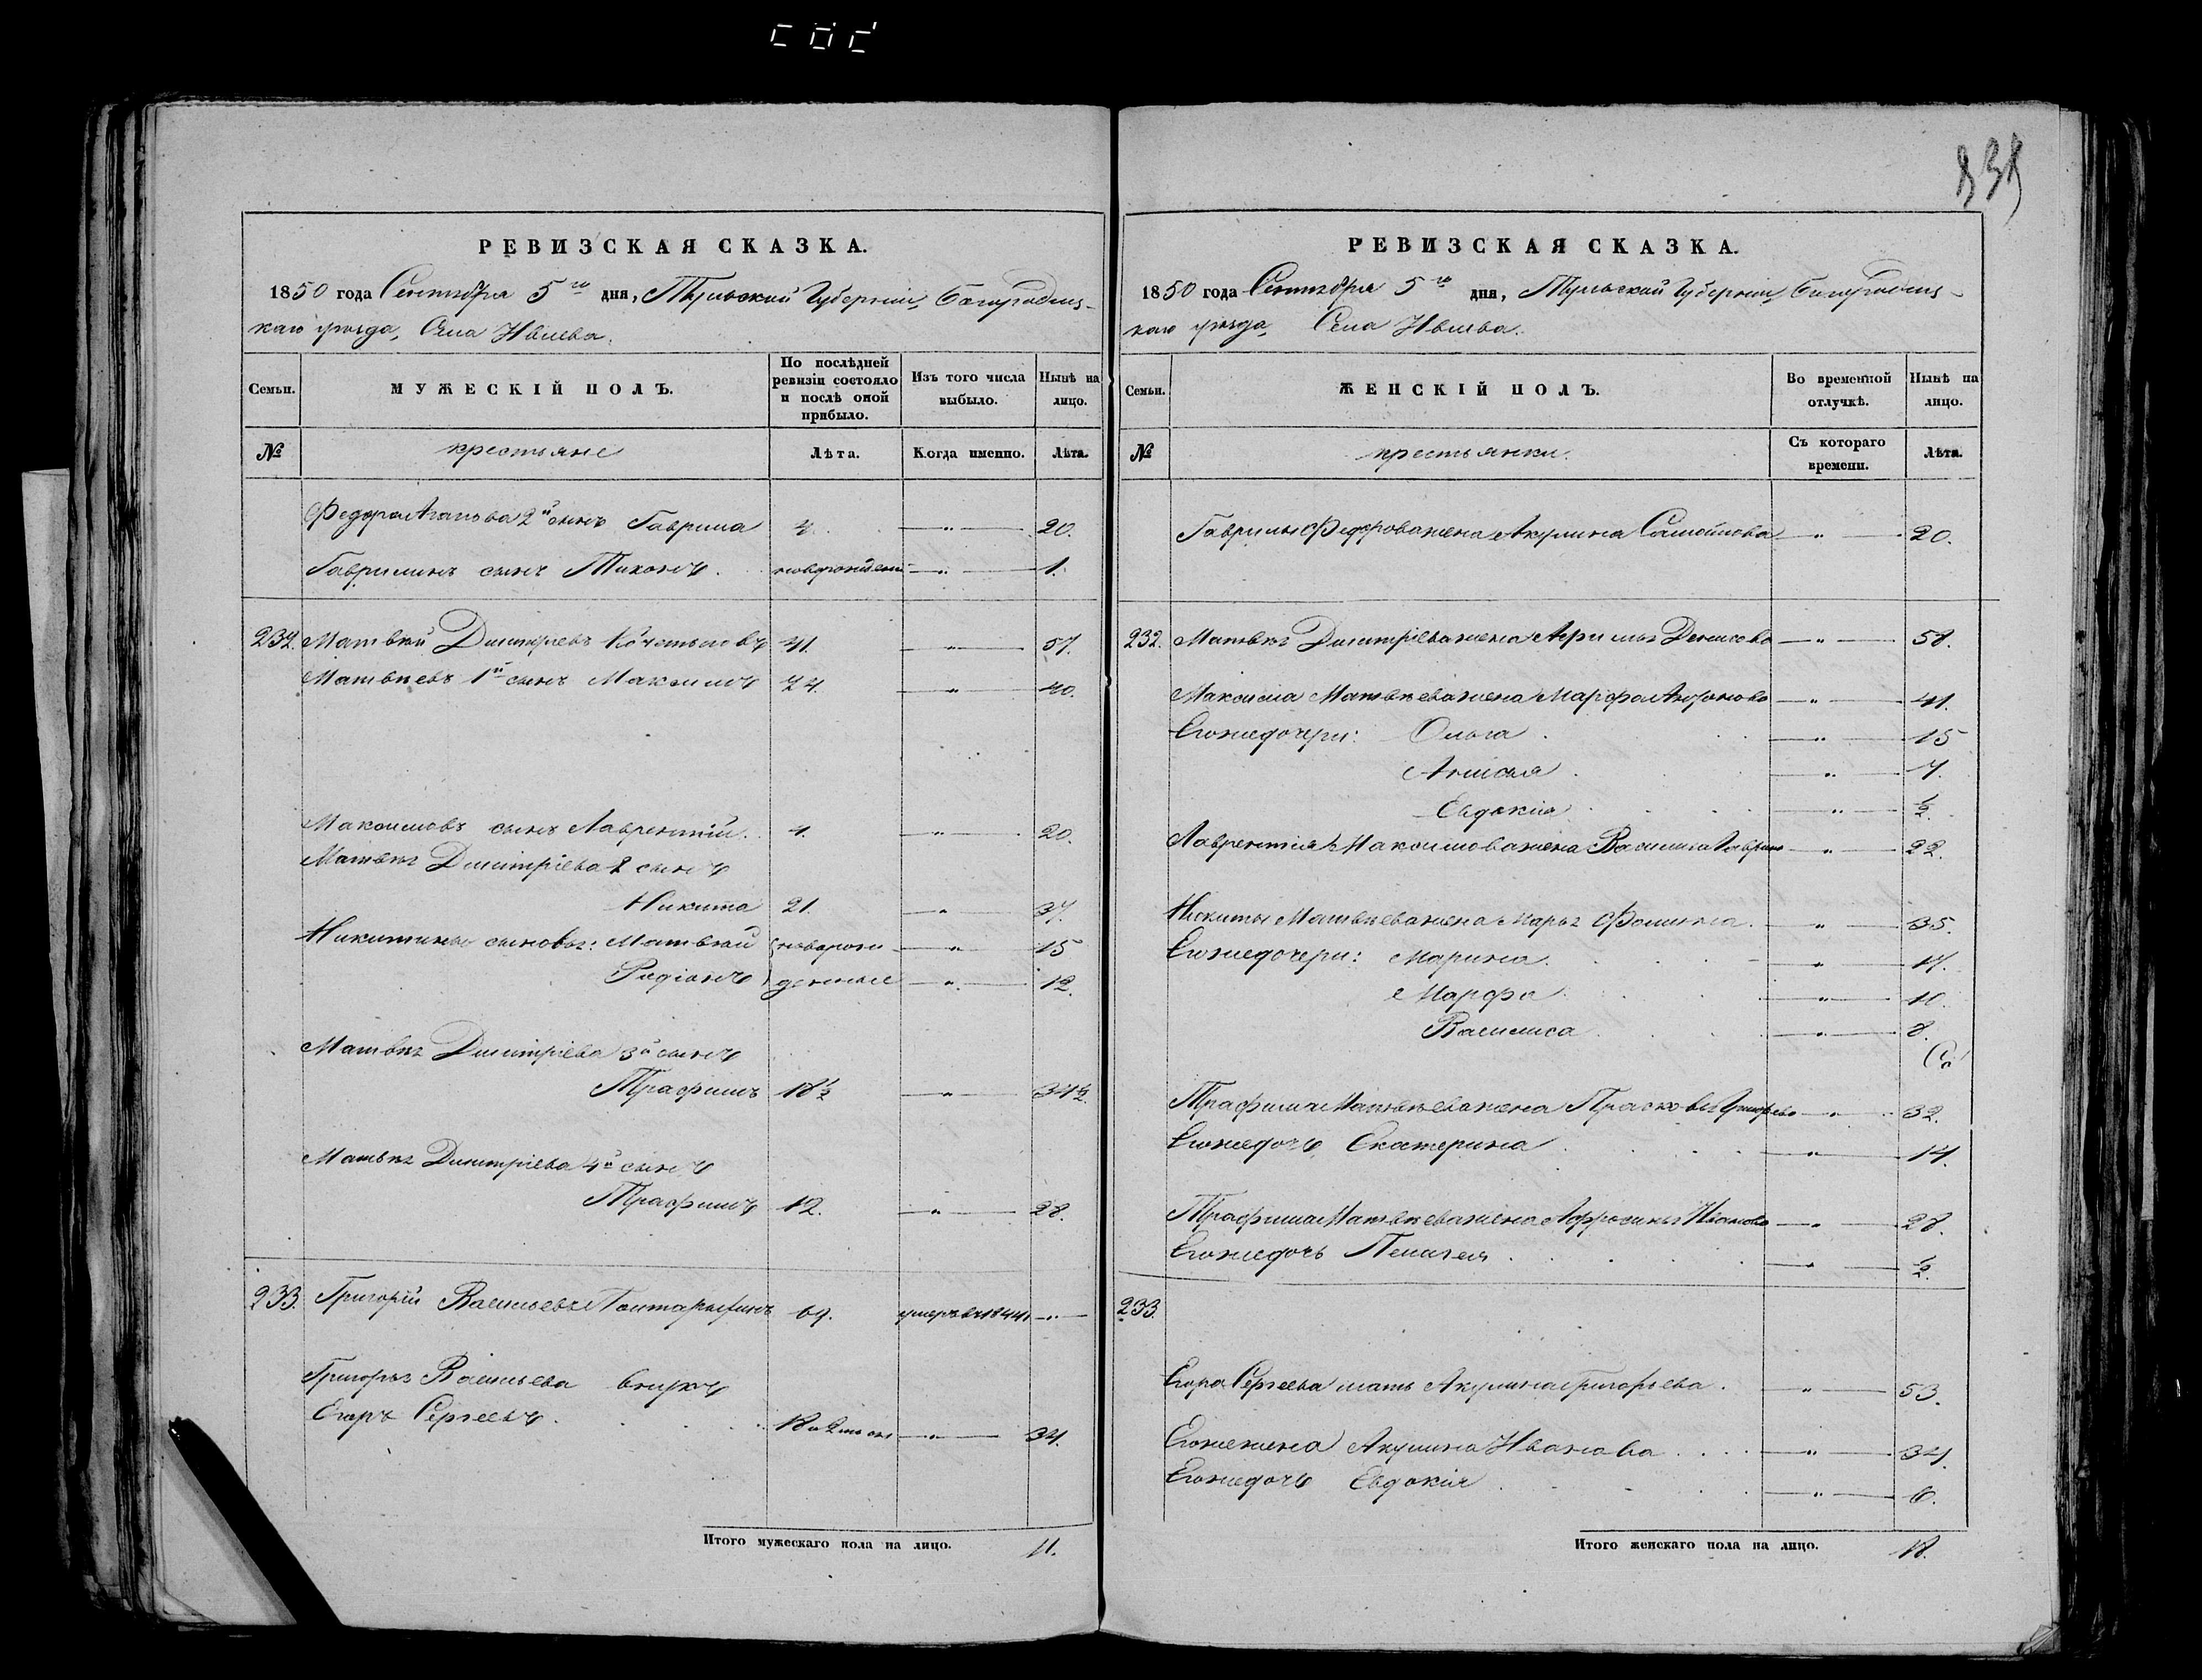 838
РЕВИЗСКАЯ СКАЗКА.
1850 года Сентября 5го дня, Тульской Губернии, Богородиц-
каго уѣзда, Села Ивлева.
Семьи. МУЖЕСКІЙ ПОЛЪ. По послѣдней ревизіи состояло и послѣ оной прибыло. Изъ того числа выбыло. Нынѣ на лицо.
№ крестьяне Лѣта. Когда именно. Лѣта.
Федора Агапова 2й сынъ Гаврила 4. „ 20.
Гаврилинъ сынъ Тихонъ. новорожден „ 1.
232. Матвѣй Дмитріевъ 41. „ 57.
Матвѣевъ 1й сынъ Максимъ 24. „ 40.
Максимовъ сынъ Лаврентій. 4. „ 20.
Матвѣя Дмитріева 2 сынъ
Никита 21. „ 37.
Никитины сыновья: Матвѣй новорож- „ 15
Родіонъ денные „ 12.
Матвѣя Дмитріева 3й сынъ
Трафимъ 18½ „ 34½.
Матвѣя Дмитріева 4й сынъ
Трафимъ 12. „ 28.
233. Григорій Васильевъ 69. умеръ въ 1844 „
Григорья Васильева внукъ
Егоръ Сергеевъ. 18 „ 34.
Итого мужескаго пола на лицо. 11.
РЕВИЗСКАЯ СКАЗКА.
1850 года Сентября 5го дня, Тульской Губерніи, Богородиц-
каго уѣзда, Села Ивлева.
Семьи. ЖЕНСКІЙ ПОЛЪ. Во временной отлучкѣ. Нынѣ на лицо.
№ крестьянки. Съ котораго времени. Лѣта.
Гаврилы Федорова жена Акулина Самойлова „ 20.
232. Матвѣя Дмитріева жена Денисова „ 58.
Максима Матвѣева жена Марфа „ 41.
Его же дочери: Ольга „ 15
Анисья „ 7.
Евдокія „ ½.
Лаврентія Максимова жена Василиса Гаврил „ 22.
Никиты Матвѣева жена Марья Фомина. „ 35.
Его же дочери: Марина. „ 17.
Марфа „ 10.
Василиса „ 8.
Трафима Матвѣева жена Прасковья Григорьева „ 32.
Его же дочь Екатерина „ 14.
Трафима Матвѣева жена Афросинья Иванова „ 28.
Его же дочь Пелагея „ ½.
233.
Егора Сергеева мать Акулина Григорьева. „ 53.
Его же жена Акулина Иванова „ 34.
Его же дочь Евдокія „ 6.
Итого женскаго пола на лицо. 18.